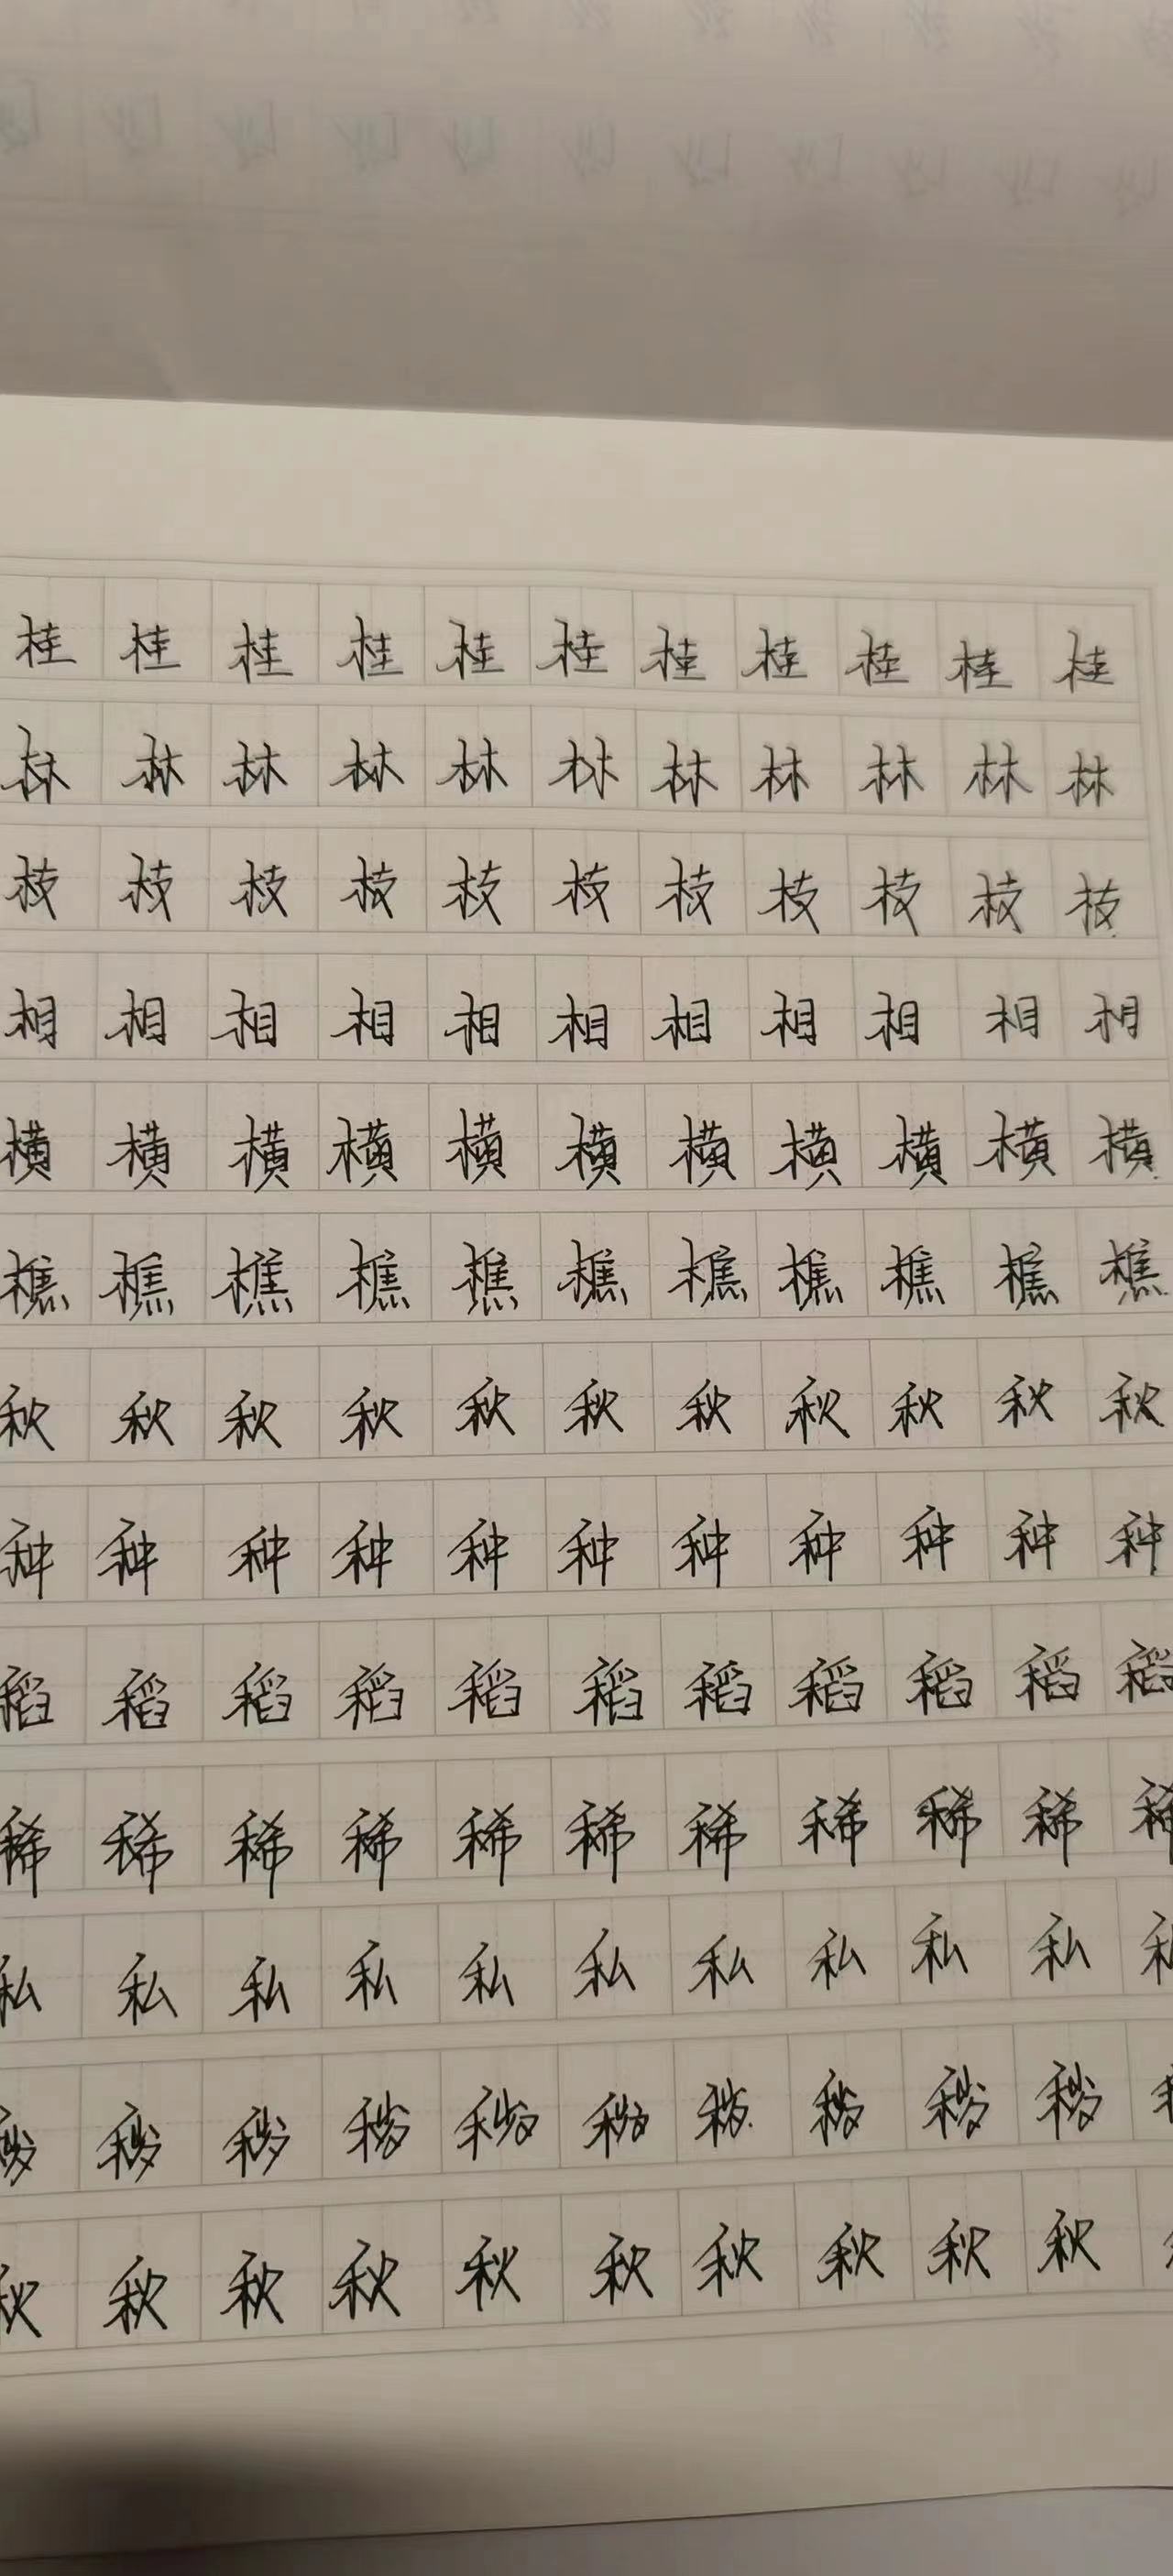 桂桂桂桂桂桂桂桂桂桂桂
林林林林林林林林林林林
枝枝枝枝枝枝枝枝枝枝枝
相相相相相相相相相相相
横横横横横横横横横横横
樵樵樵樵樵樵樵樵樵樵樵
秋秋秋秋秋秋秋秋秋秋秋
种种种种种种种种种种种
稻稻稻稻稻稻稻稻稻稻稻
稀稀稀稀稀稀稀稀稀稀稀
私私私私私私私私私私私
秽秽秽秽秽秽秽秽秽秽
秋秋秋秋秋秋秋秋秋秋